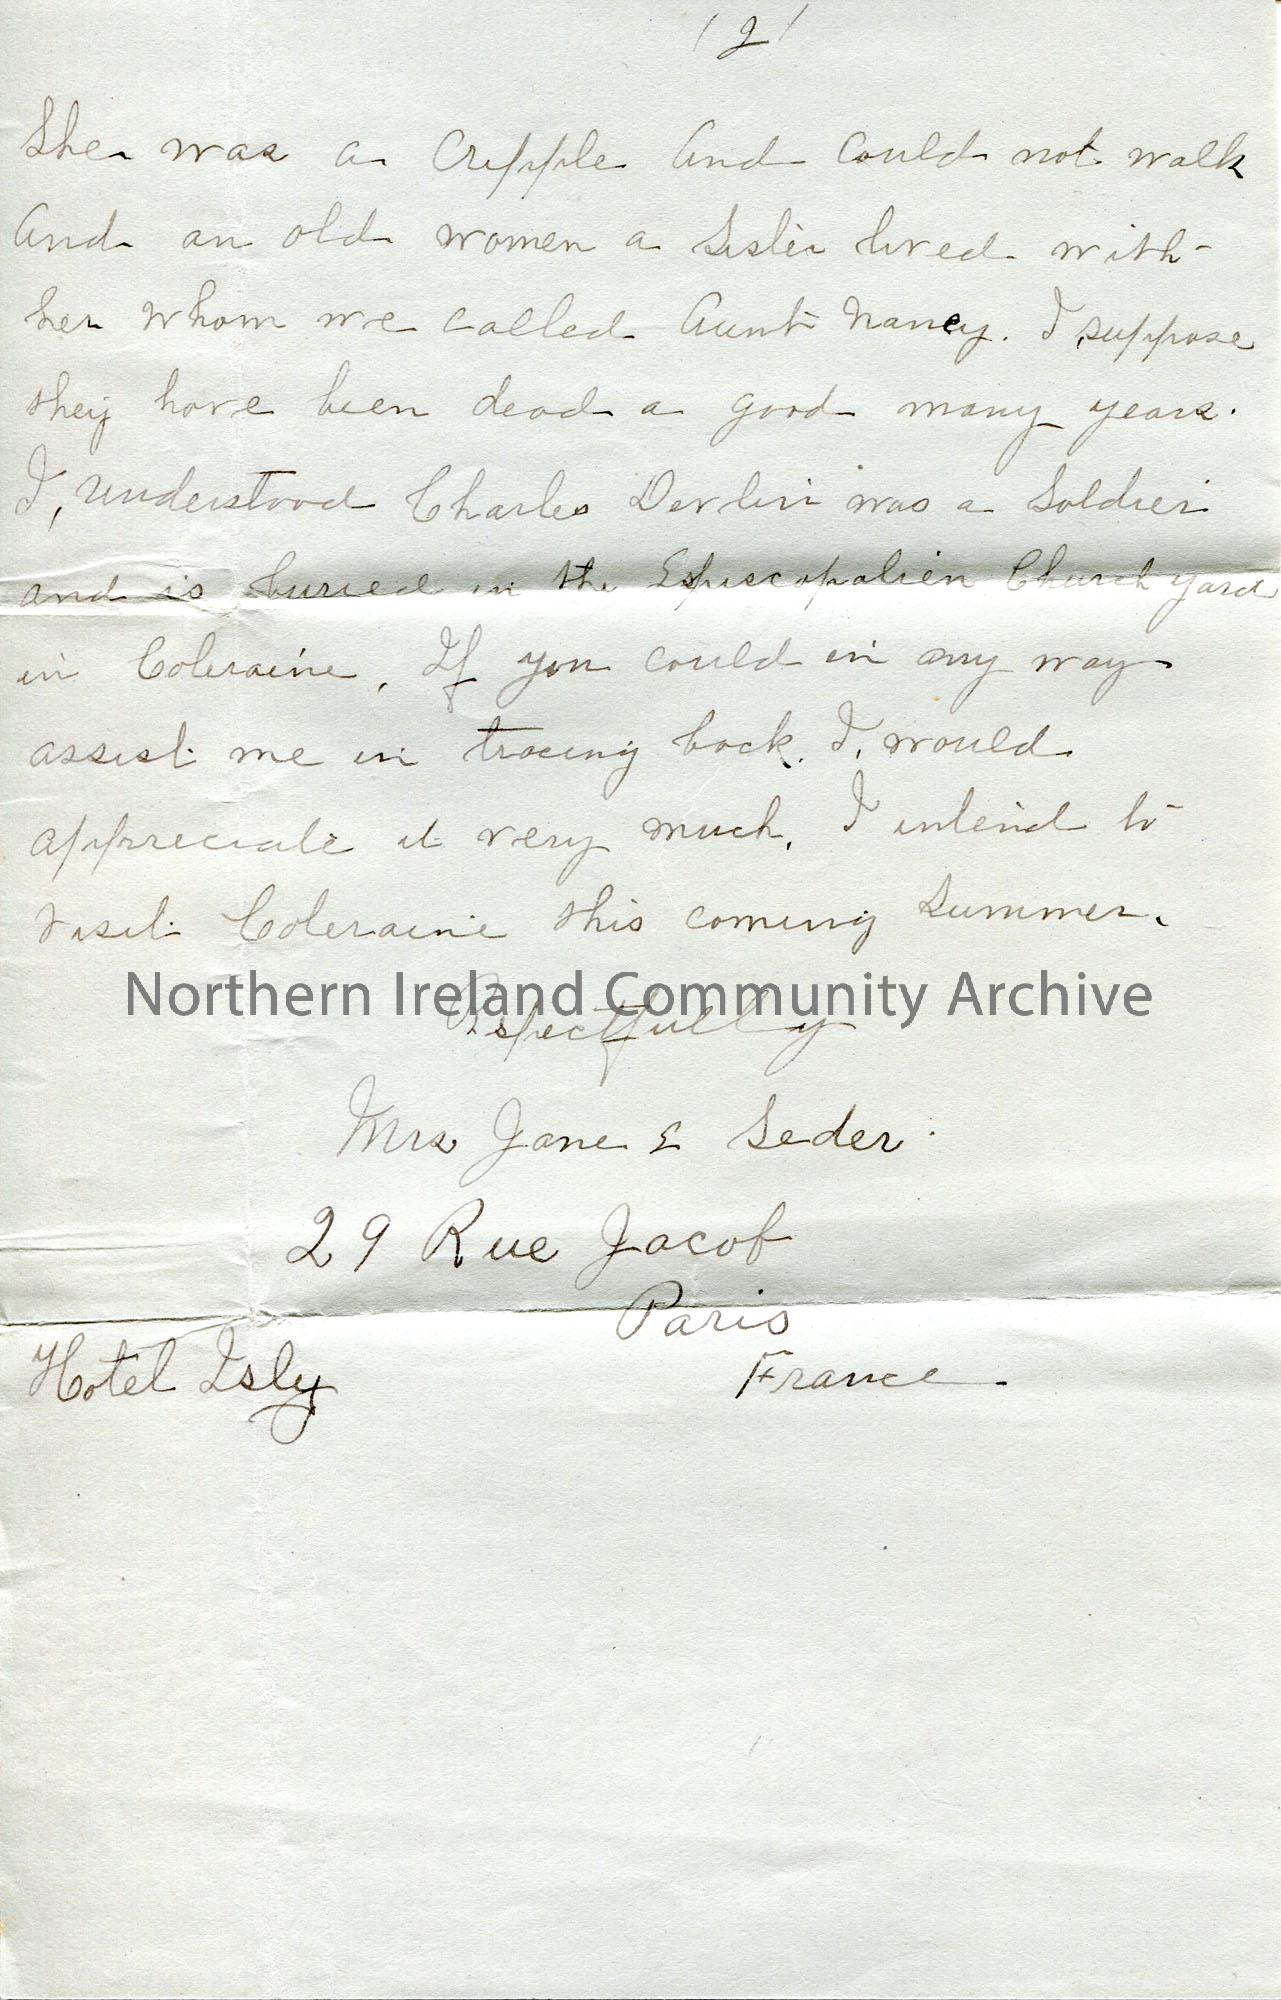 /2/
She was a Cripple And Could not walk
And an old women a Sister lived with
her whom we called Aunt Nancy. I, suppose
they have been dead a good many years.
I, understood Charles Devlin was a Soldier
and is buried in the Espiscopalien Church yard
in Coleraine, If you could in any way
assist me in tracing back. I, would
appreciate it very much, I intend to
visit Coleraine this coming Summer.
Northern Ireland Community Archive
Respectfully
Mrs Jane E Seder.
29 Rue Jacob
Paris
Hotel Isly
France.